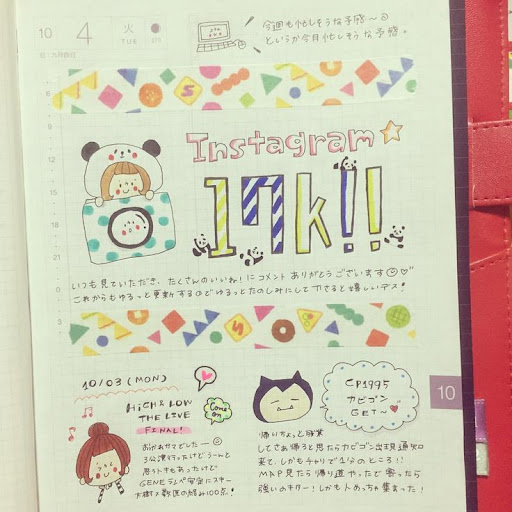 10 4 火 TUE
今週も忙しそうな予感〜
というか今月忙しそうな予感。
6
9
12
15
18
21
0
3
Instagram
17k!!
いつも見ていただき、たくさんのいいね!にコメントありがとうございます
これからもゆるっと更新するのでゆるっとたのしみにして下さると嬉しいデス!
10/03 (MON)
HiGH & LOW
THE LIVE
FINAL!
Come on
おつかれサマでしたー
3公演行ったけどうーんと
思うトキもあったけど
CP1995
カビゴン
GET〜
10
帰りちょっと残業
してさぁ帰ろと思たらカビゴン出現通知
来て、しかもチャリで1分のところ!!
MAP見たら帰り道やったで寄ったら
強いのキター!しかも人めっちゃ集まった!